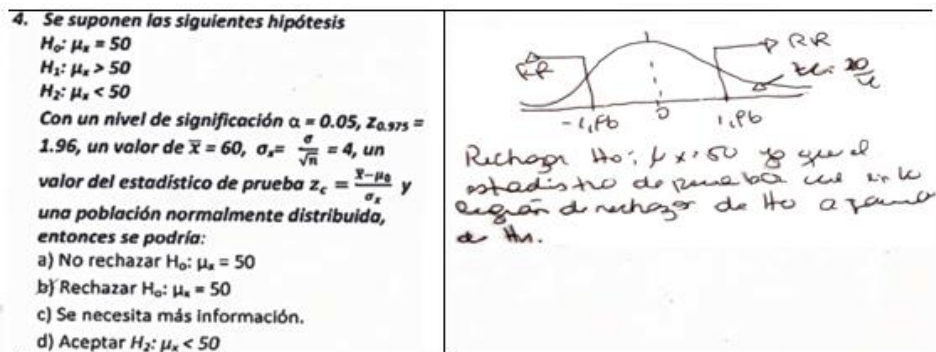 4. Se suponen las siguientes hipótesis
H₀: μₓ = 50
H₁: μₓ > 50
H₂: μₓ < 50
Con un nivel de significación α = 0.05, Z₀.₉₇₅ =
1.96, un valor de x̅ = 60, σₓ= σ/√n = 4, un
valor del estadístico de prueba z_c = (x̅−μ₀)/σₓ y
una población normalmente distribuida,
entonces se podría:
a) No rechazar H₀: μₓ = 50
b) Rechazar H₀: μₓ = 50
c) Se necesita más información.
d) Aceptar H₂: μₓ < 50
RR
RR
-1,96 0 1,96
Rechazar Ho: μx=50 ya que el
estadístico de prueba cae en la
región de rechazo de Ho a
de H1.